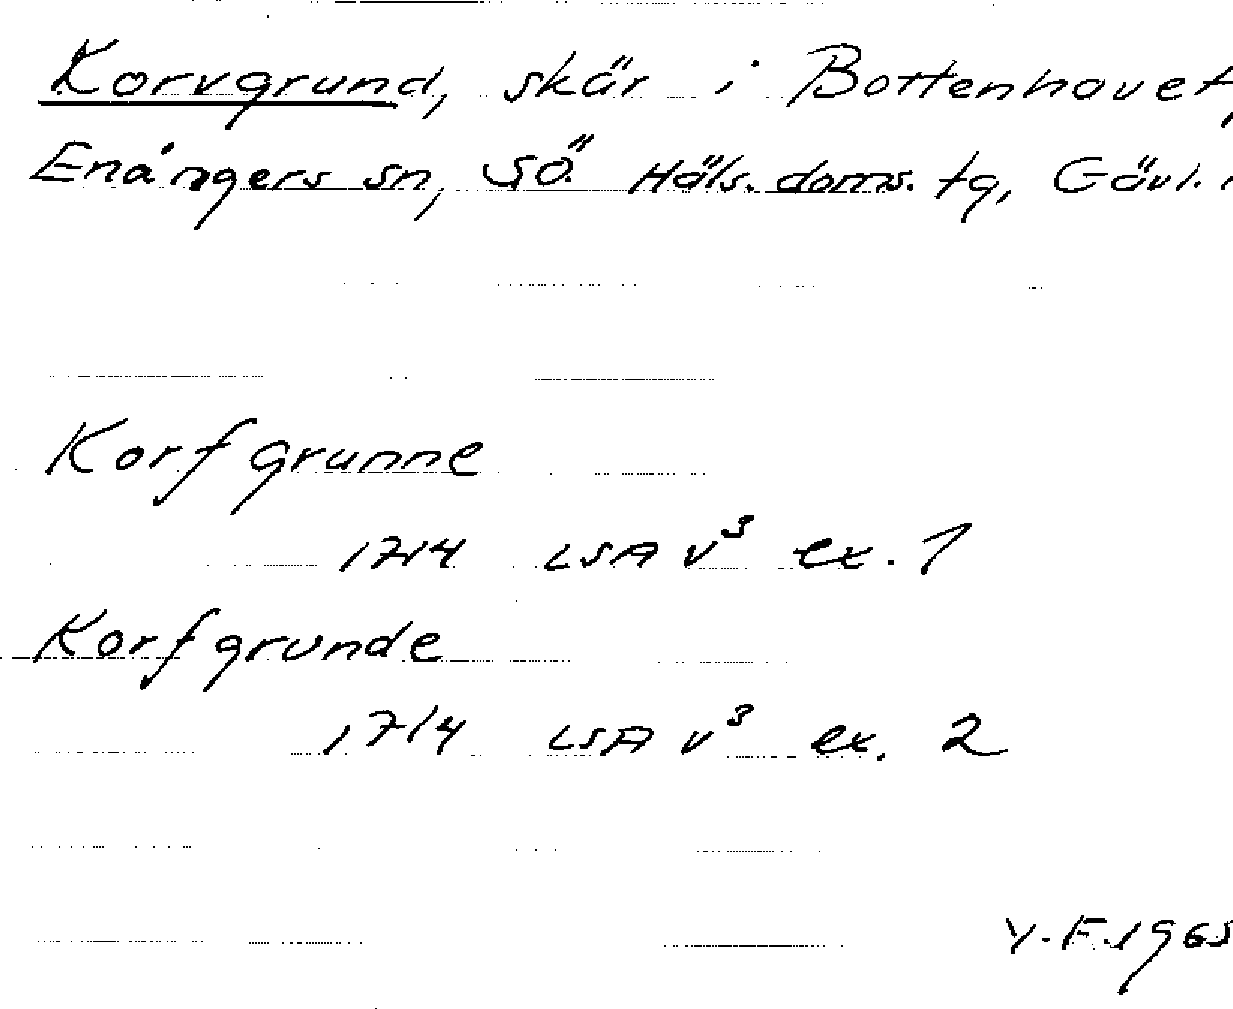 Korvgrund, skär i Bottenhavet,
Enångers sn, SÖ. Häls. doms. tg, Gävl. l
Korfgrunne
1714 LSA V³ ex. 1
Korfgrunde
1714 LSA V³ ex. 2
Y.F. 1965